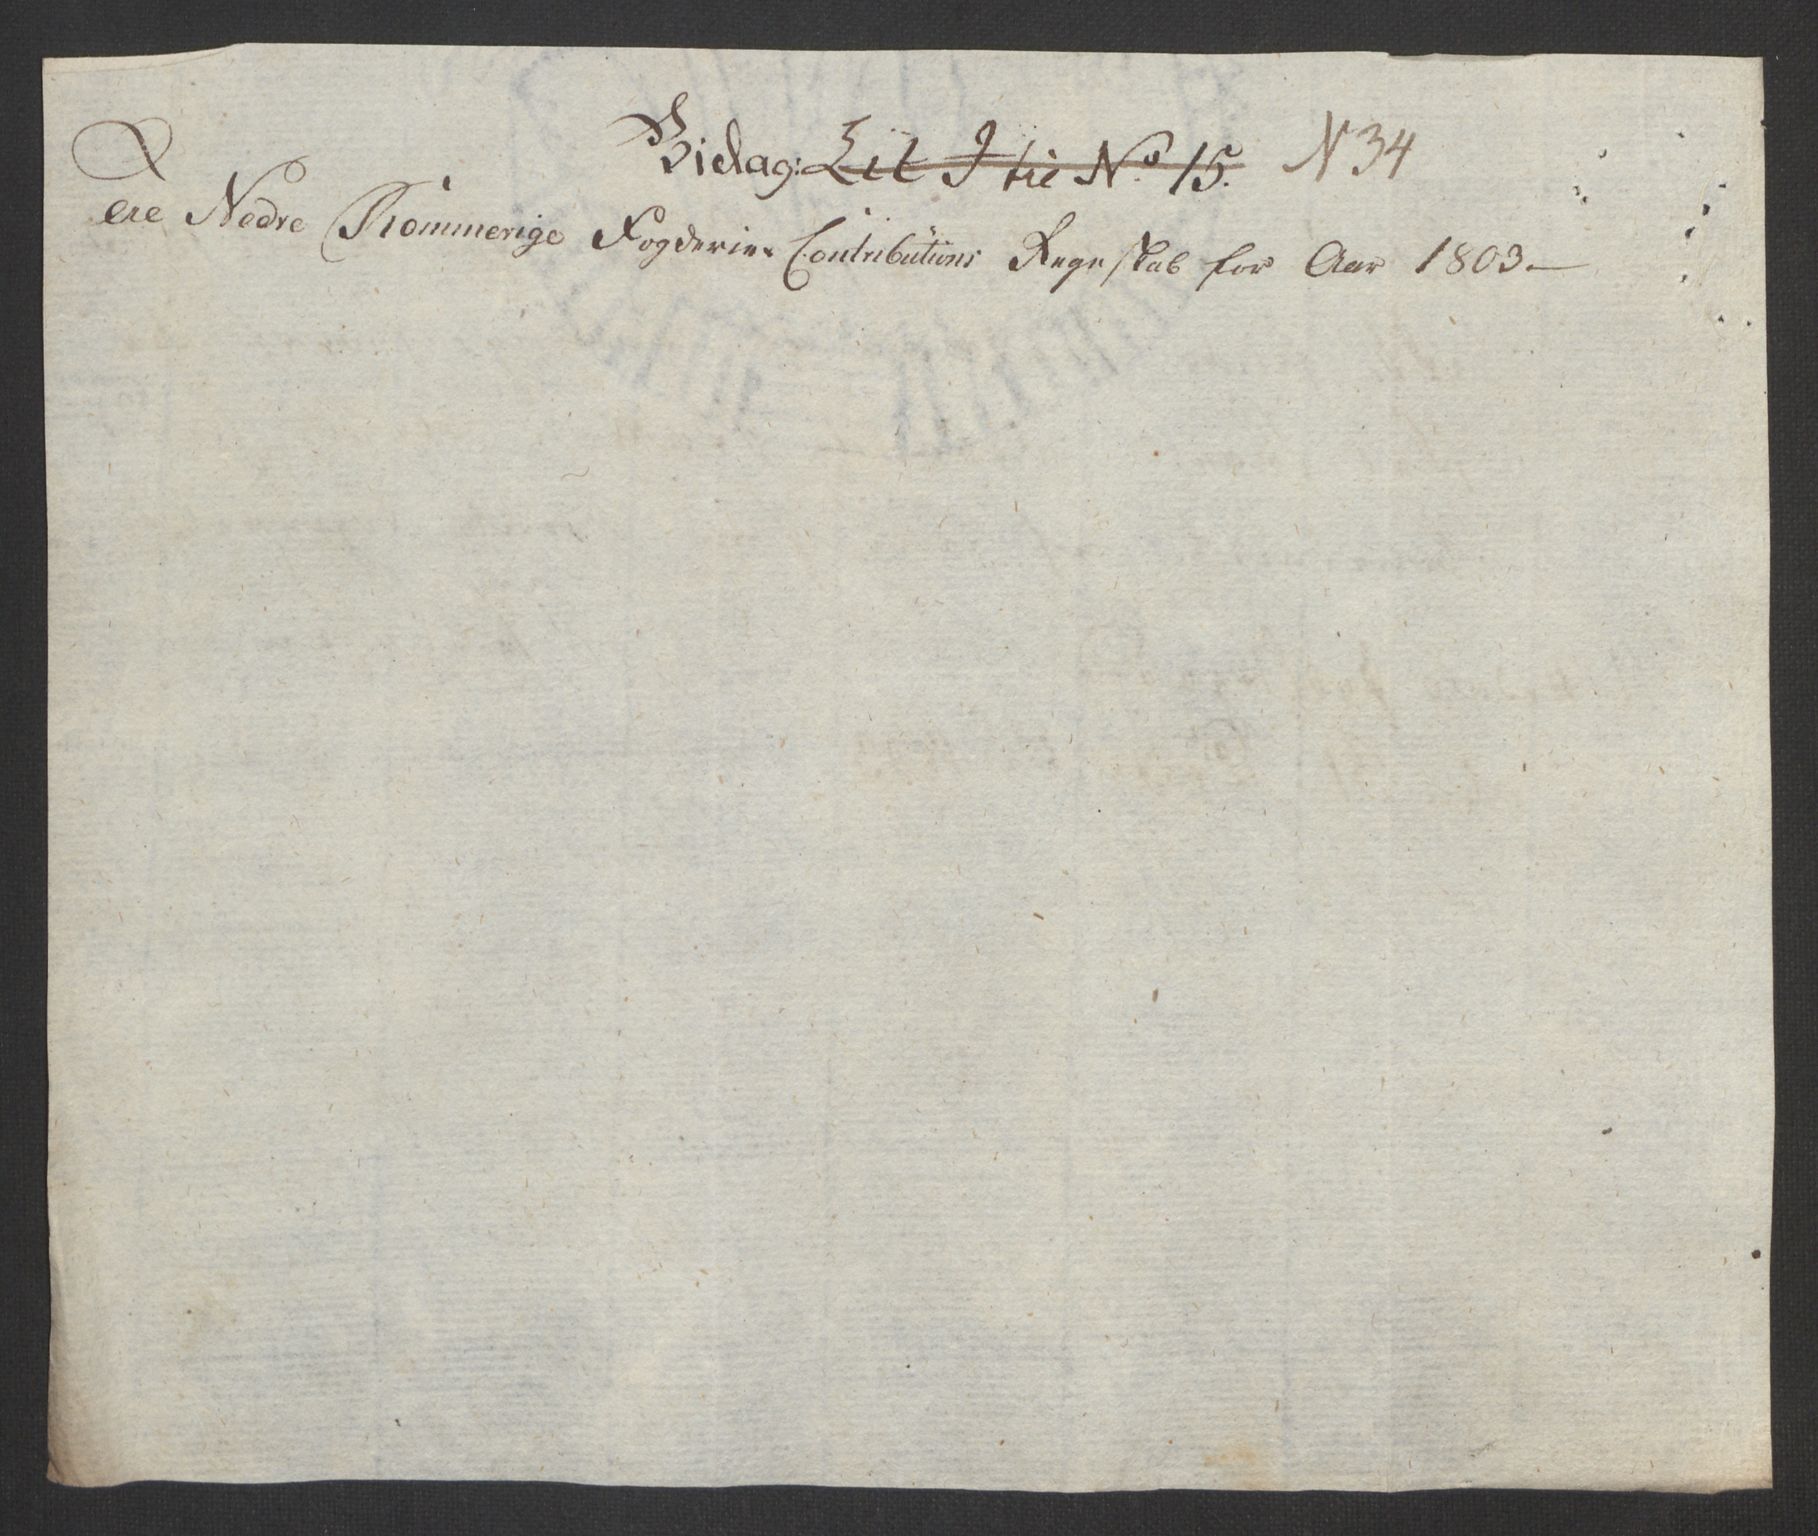 Bielag: Lit J tie No 15. N 34
ere Nedre Rommerige Fogderies Contributions Regnskab for Aar 1803 —